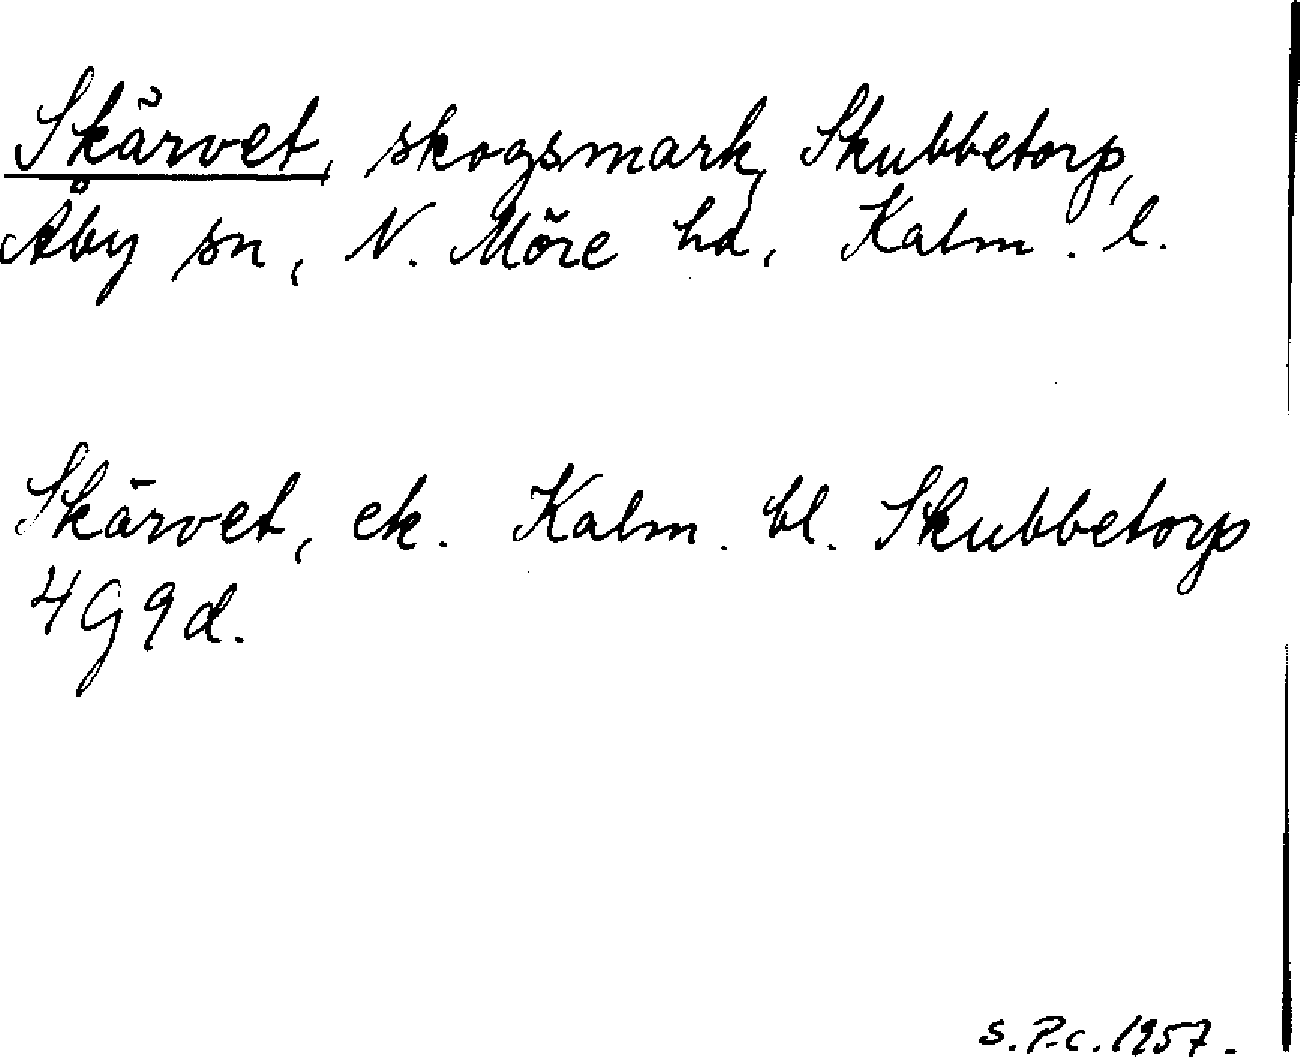 Skärvet, skogsmark, Skubbetorp,
Åby sn, N. Möre hd, Kalm. l.
Skärvet, ek. Kalm. bl. Skubbetorp
4G9d.
S.P-c. 1957.